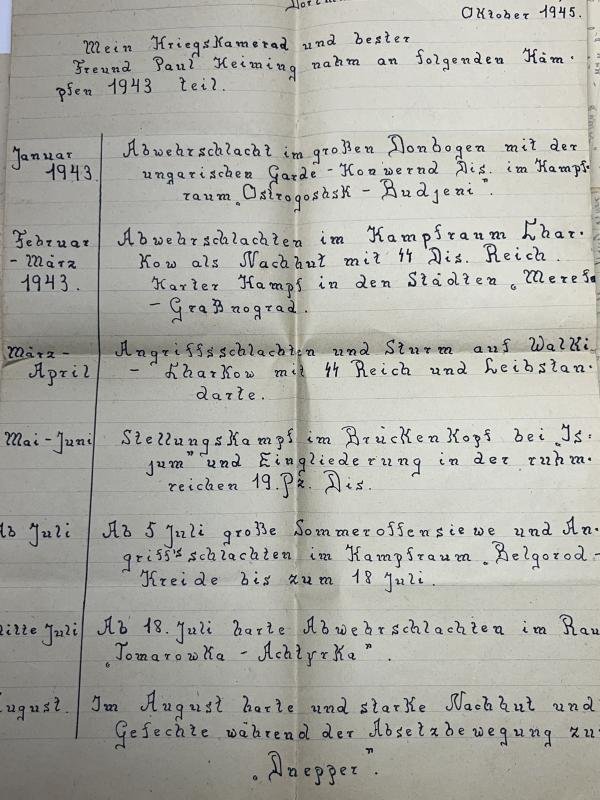 Oktober 1945.
Mein Kriegskamerad und bester
Freund Paul Heiming nahm an folgenden Käm-
pfen 1943 teil.
Januar 1943.
Abwehrschlacht im großen Donbogen mit der
ungarischen Garde-Honwernd Dis. im Kampf-
raum „Ostrogoshsk - Budjeni".
Februar - März 1943.
Abwehrschlachten im Kampfraum Char-
kow als Nachhut mit SS Dis. Reich.
Harter Kampf in den Städten „Meref
- Graßnograd.
März - April
Angriffsschlachten und Sturm auf Walki-
- Charkow mit SS Reich und Leibstan-
darte.
Mai-Juni
Stellungskampf im Brückenkopf bei „Is-
jum" und Eingliederung in der ruhm-
reichen 19. Pz. Dis.
Ab Juli
Ab 5 Juli große Sommeroffensiewe und An-
griff's schlachten im Kampfraum „Belgorod-
Kreide bis zum 18 Juli.
itte Juli
Ab 18. Juli harte Abwehrschlachten im Rau
„Tomarowka - Achtyrka".
ugust.
Im August harte und starke Nachhut und
Gefechte während der Absetzbewegung zu
„Dnepper".